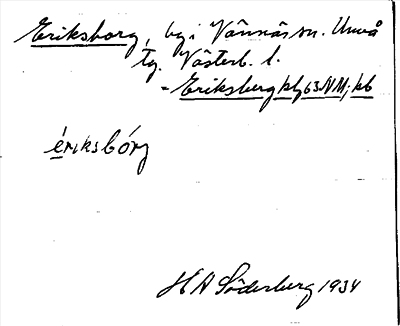 Eriksborg, by i Vännäs sn. Umeå
tg. Västerb. l.
- Eriksberg kbl 63 NV; kb
ériksbórg
H A Söderberg 1934